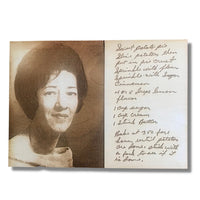 Sweet potato pie
Slice potatoes then
put in pie crust
Sprinkle with flour
Sprinkle with sugar
Cinnamon
4 or 5 drops lemon
flavor
1 cup sugar
1 cup cream
1 stick butter
Bake at 350 for
hour until potatoes
are done. check with
a fork to see if it
is done.